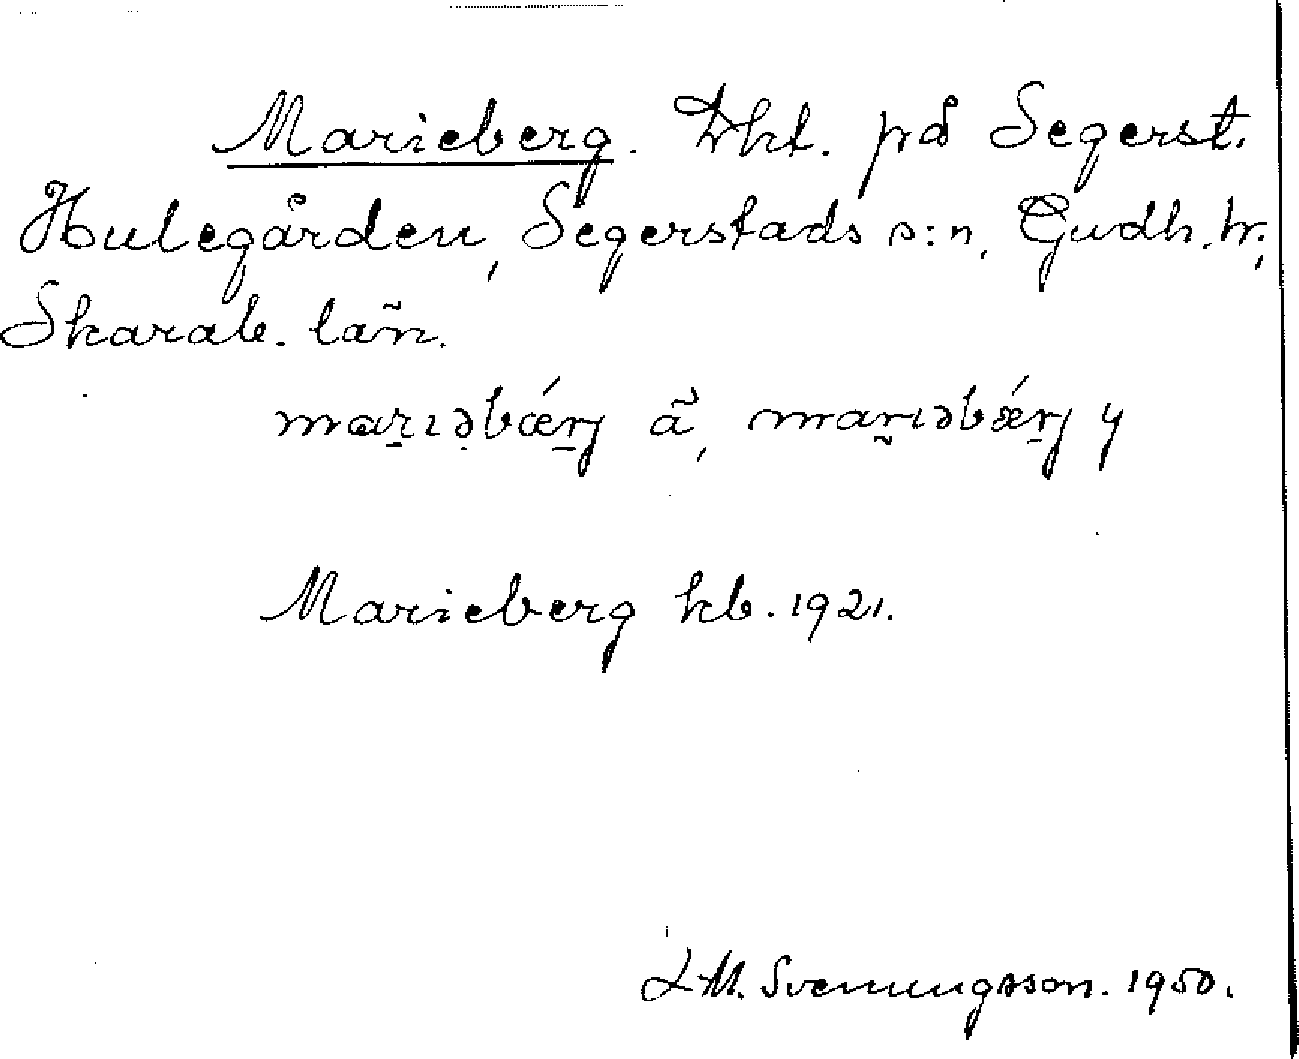 Marieberg. Lht. på Segerst.
Hulegården, Segerstads s:n, Gudh. hr,
Skarab. län.
mar̠ıəbǽr̠j ã, mar̰ıəbǽr̠j y
Marieberg kb. 1921.
L M. Svenungsson. 1950.